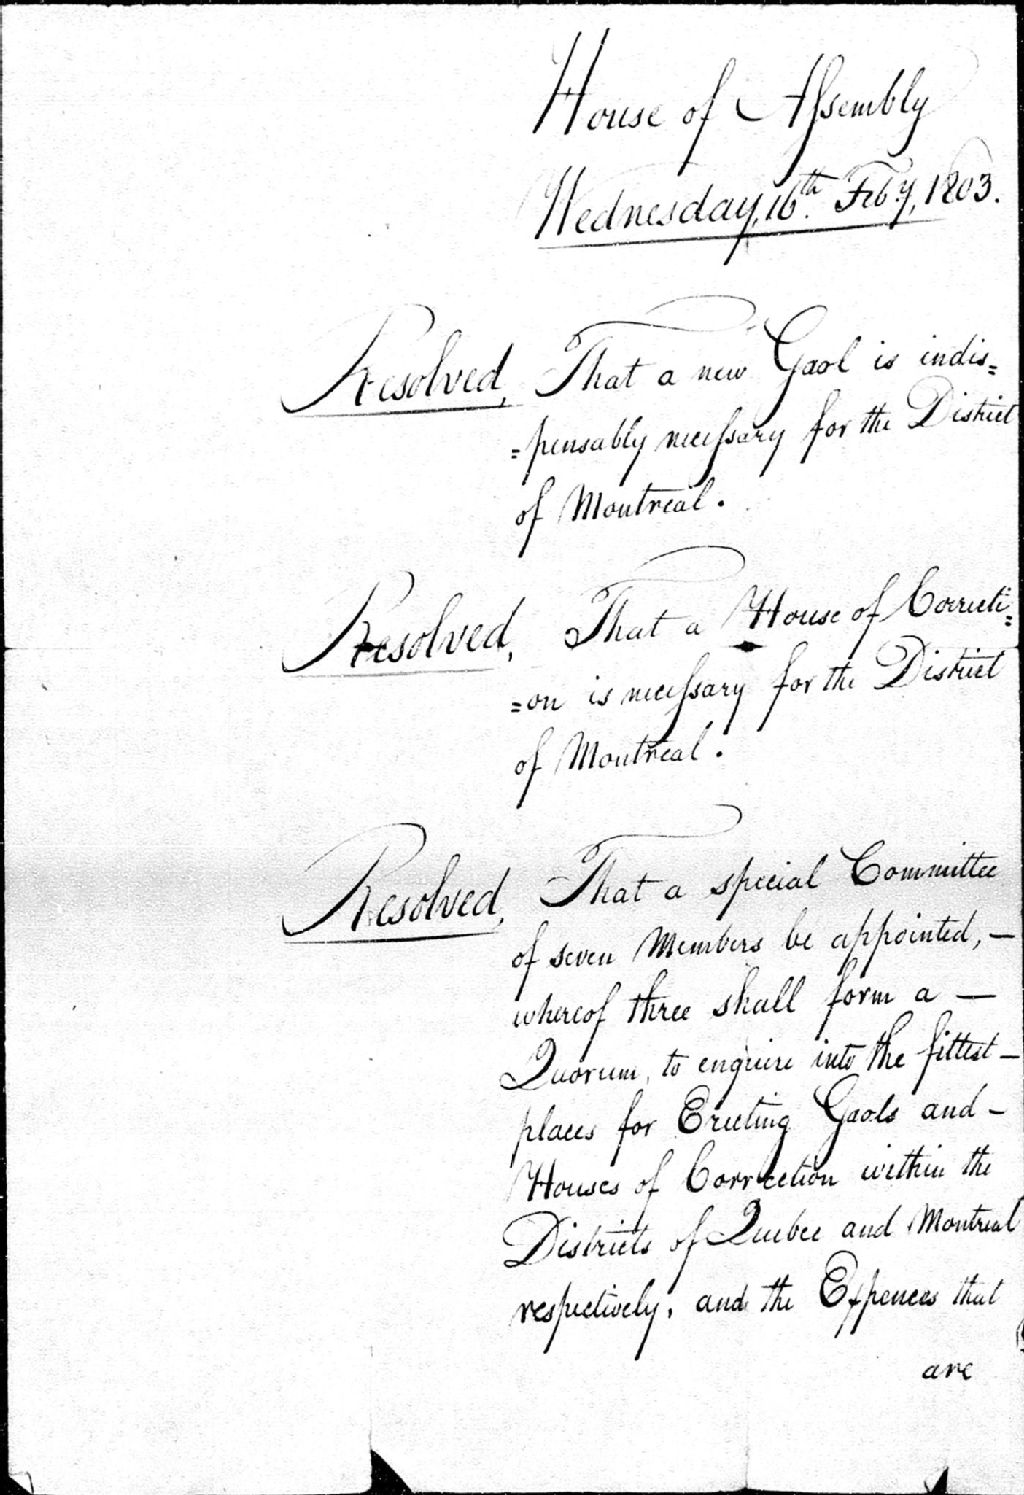 House of Assembly
Wednesday, 16th Feby, 1803.
Resolved, That a new Gaol is indis=
=pensably necessary for the District
of Montreal.
Resolved, That a House of Correcti=
=on is necessary for the District
of Montreal.
Resolved, That a special Committee
of seven Members be appointed, —
whereof three shall form a —
Quorum, to enquire into the fittest —
places for Erecting Gaols and —
Houses of Correction within the
Districts of Quebec and Montreal
respectively, and the Expences that
are